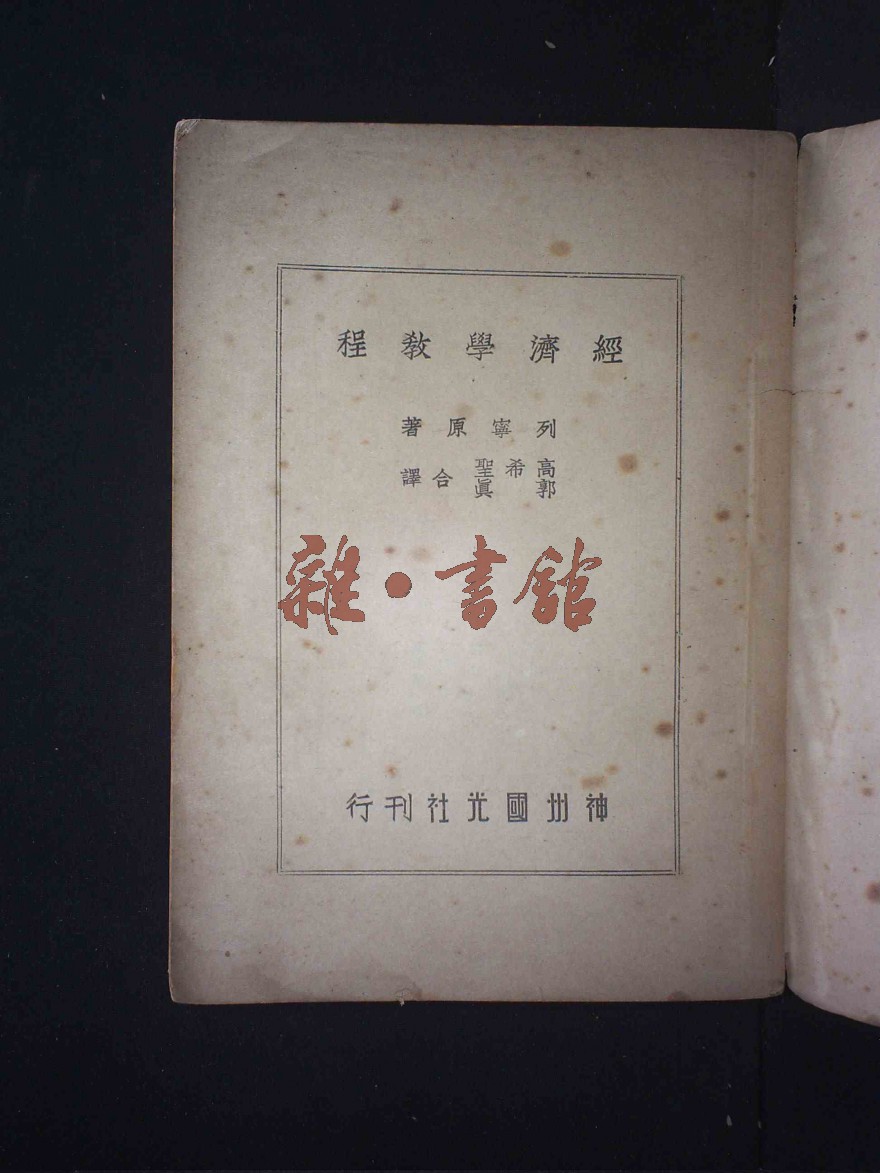 經濟學教程
列寧原著
高希聖
郭真合譯
雜·書館
神州國光社刊行